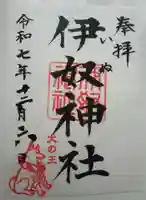 奉拝
伊奴神社
いぬ
犬の王
令和七年十二月二六日